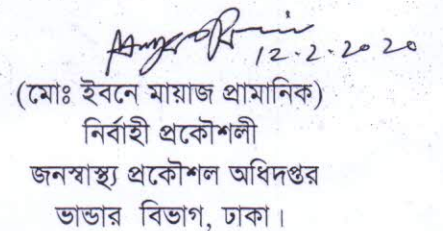 12.2.2020
(মোঃ ইবনে মায়াজ প্রামানিক)
নির্বাহী প্রকৌশলী
জনস্বাস্থ্য প্রকৌশল অধিদপ্তর
ভান্ডার বিভাগ, ঢাকা।